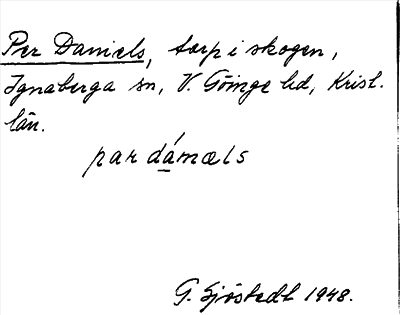 Per Daniels, torp i skogen,
Ignaberga sn, V. Göinge hd, Krist.
län.
par dámæls
G. Sjöstedt 1948.